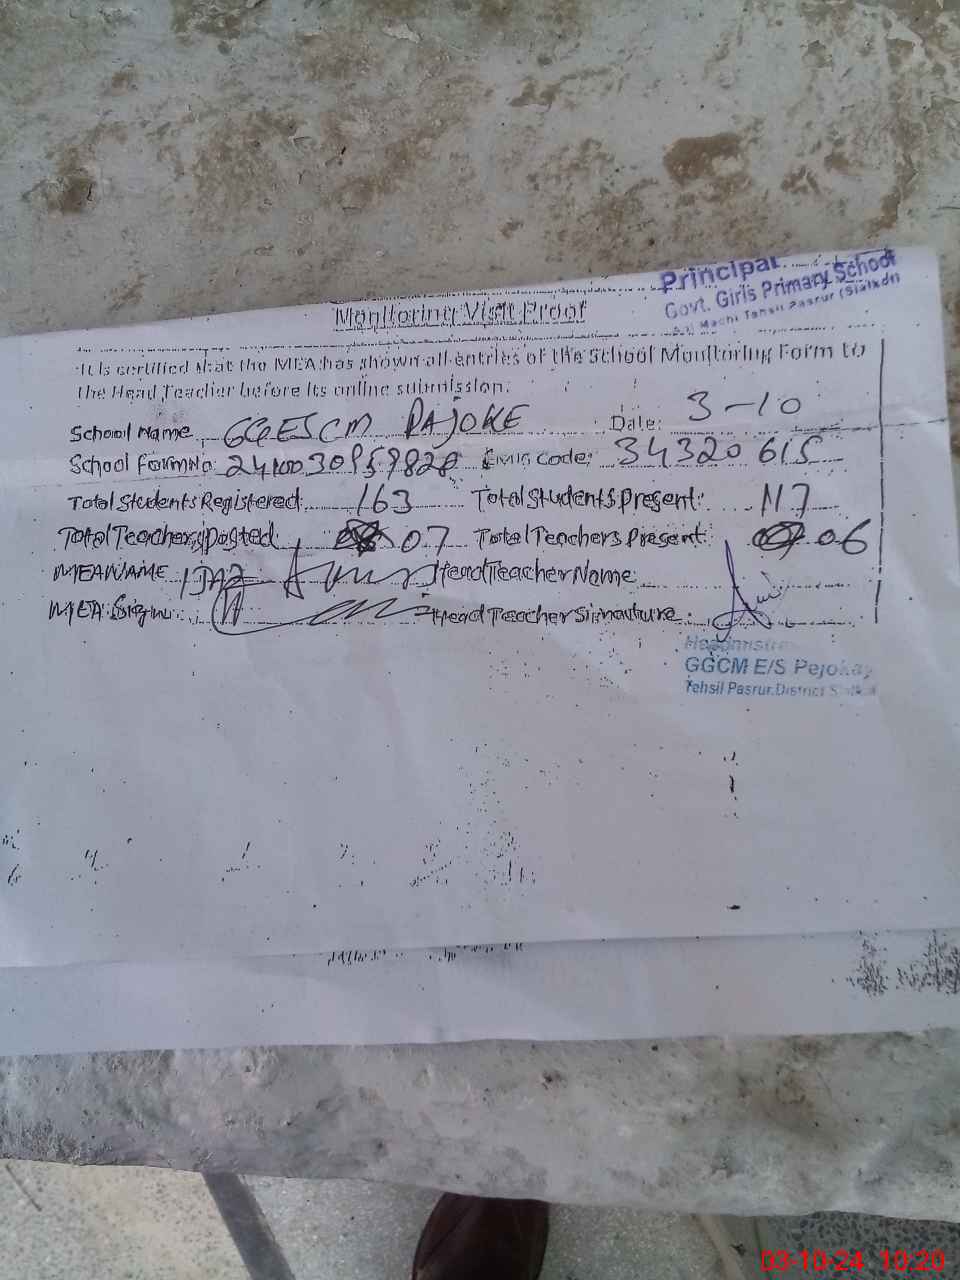 Principal
Govt. Girls Primary School
Machi Tehsil Pasrur (Sialkot)
Monitoring Visit Proof
It is certified that the MEA has shown all entries of the School Monitoring Form to
the Head Teacher before its online submission.
School Name GGESCM PAJOKE Date: 3-10
School Form No: EMIS Code: 34320615
Total Students Registered: 163 Total Students Present: 117
Total Teachers Posted 07 Total Teachers Present: 06
MEA NAME IJAZ Head Teacher Name
MEA Sign: Head Teacher Signature
Headmistress
GGCM E/S Pejokay
Tehsil Pasrur. District
03-10-24 10:20